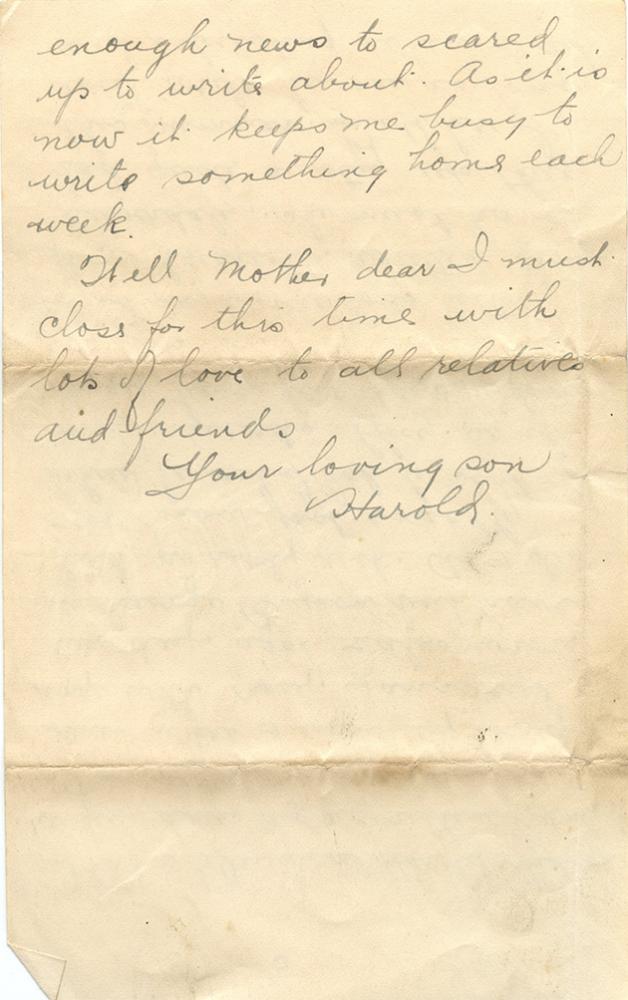 enough news to scared
up to write about. As it is
now it keeps me busy to
write something home each
week.
Well Mother dear I must
close for this time with
lots of love to all relatives
and friends
Your loving son
Harold.